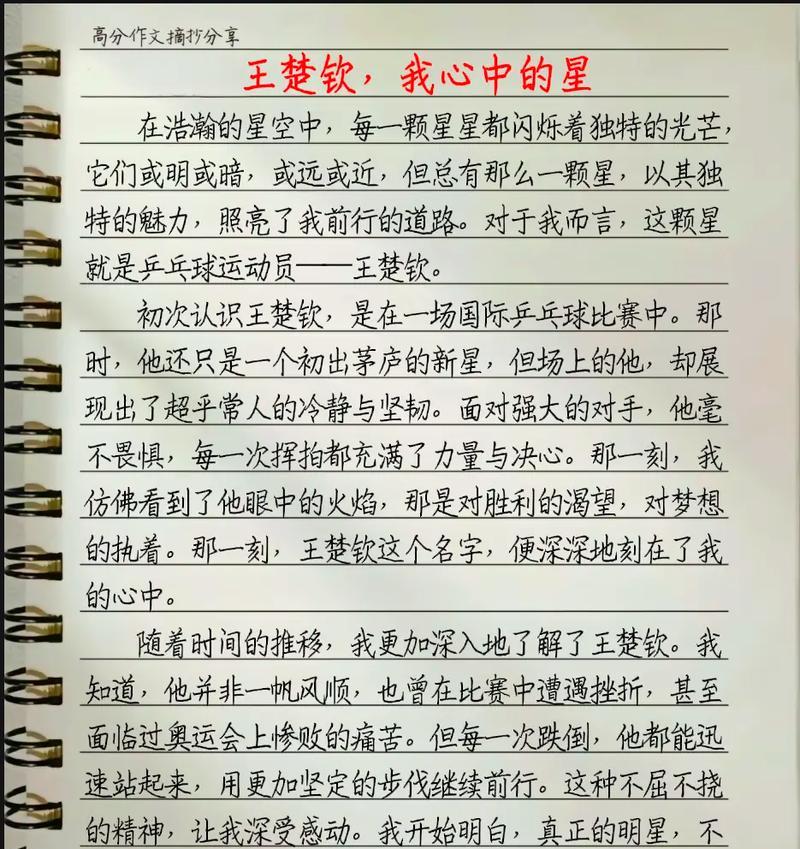 高分作文摘抄分享
王楚钦，我心中的星
在浩瀚的星空中，每一颗星星都闪烁着独特的光芒，
它们或明或暗，或远或近，但总有那么一颗星，以其独
特的魅力，照亮了我前行的道路。对于我而言，这颗星
就是乒乓球运动员——王楚钦。
初次认识王楚钦，是在一场国际乒乓球比赛中。那
时，他还只是一个初出茅庐的新星，但场上的他，却展
现出了超乎常人的冷静与坚韧。面对强大的对手，他毫
不畏惧，每一次挥拍都充满了力量与决心。那一刻，我
仿佛看到了他眼中的火焰，那是对胜利的渴望，对梦想
的执着。那一刻，王楚钦这个名字，便深深地刻在了我
的心中。
随着时间的推移，我更加深入地了解了王楚钦。我
知道，他并非一帆风顺，也曾在比赛中遭遇挫折，甚至
面临过奥运会上惨败的痛苦。但每一次跌倒，他都能迅
速站起来，用更加坚定的步伐继续前行。这种不屈不挠
的精神，让我深受感动。我开始明白，真正的明星，不